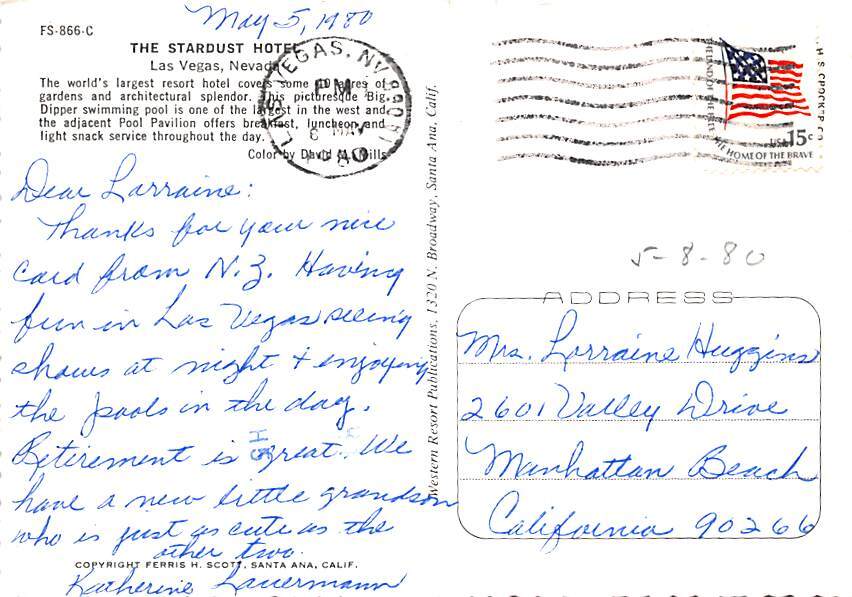 May 5, 1980
FS-866-C
THE STARDUST HOTEL
Las Vegas, Nevada
The world's largest resort hotel covers some acres of
gardens and architectural splendor. This picturesque Big
Dipper swimming pool is one of the largest in the west and
the adjacent Pool Pavilion offers breakfast, luncheon and
light snack service throughout the day.
Color by David Mills
LAS VEGAS, NV
PM
8 MAY
Dear Lorraine:
Thanks for your nice
card from N.Z. Having
fun in Las Vegas seeing
shows at night + enjoying
the pools in the day.
Retirement is great. We
have a new little grandson
who is just as cute as the
other two.
COPYRIGHT FERRIS H. SCOTT, SANTA ANA, CALIF.
Katherine Lauermann
Western Resort Publications, 1320 N. Broadway, Santa Ana, Calif.
USA 15c
THE HOME OF THE BRAVE
5-8-80
ADDRESS
Mrs. Lorraine Huggins
2601 Valley Drive
Manhattan Beach
California 90266